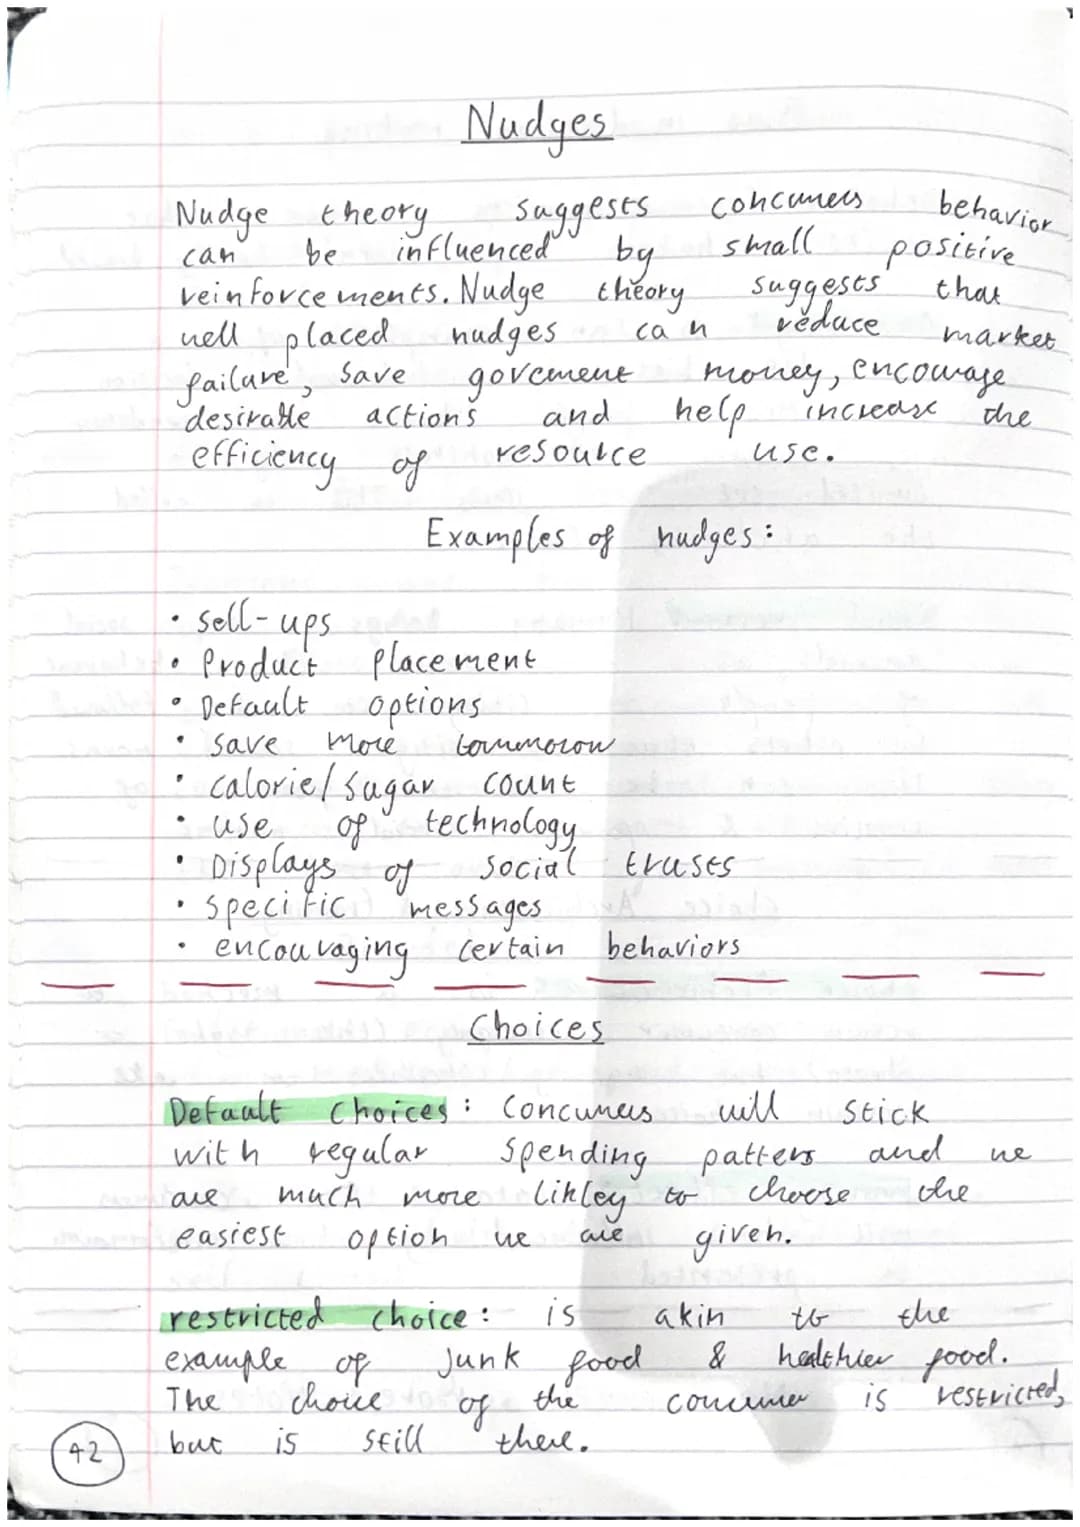 Nudges
Nudge theory suggests concumers behavior
can be influenced by small positive
reinforcements. Nudge theory suggests that
well placed nudges can reduce market
failure, save goverment money, encourage
desirable actions and help increase the
efficiency of resource use.
Examples of nudges:
• sell-ups
• Product placement
• Default options
• save more tommorow
• calorie/sugar count
• use of technology
• Displays of social truses
• specific messages
• encouraging certain behaviors
Choices
Default choices: Concumers will stick
with regular spending patters and we
are much more likley to choose the
easiest option we are given.
restricted choice: is akin to the
example of junk food & healthier food.
The choice of the concumer is restricted,
but is still there.
42